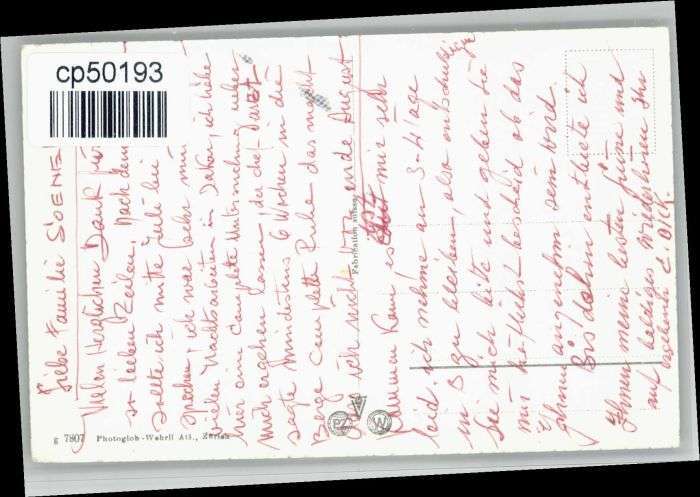 cp50193
Liebe Familie SOENE
Vielen Herzlichen Dank für
so lieben Zeilen. Nach dem
sollte ich mitte Juli bei
sprechen, ich war sehr
vielen Nachtsarbeiten in ich habe
hier ein complete Untersuchung
mich ergehen lassen, der chef Arzt
sagte mindestens 6 Wochen in die
Berge complette Ruhe das macht
ich nicht ende August
kommen kann, es tut mir sehr
leid. ich nehme an 3-4 Tage
in S zu bleiben, also entschuldigen
Sie mich bitte und geben Sie
mir höflichst bescheid ob das
Ihnen angenehm sein wird.
Bis dahin entbiete ich
Ihnen meine besten Grüsse und
auf baldiges Wiedersehen Ihr
Fabrikation suisse
g 7807 Photoglob-Wehrli AG., Zürich
PZ
W